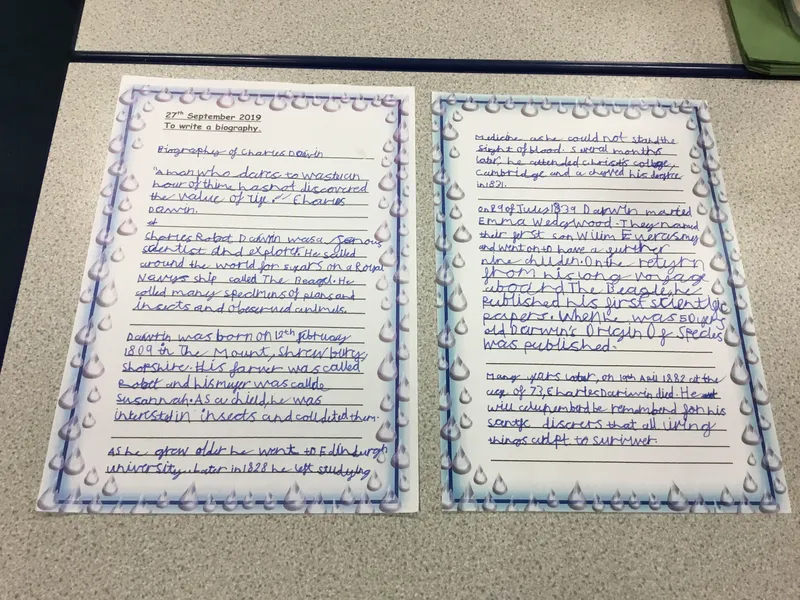 27th September 2019
To write a biography.
Biography of Charles Darwin
"A man who dares to waste an
hour of thime has not discovered
the value of life" Charles
Darwin.
Charles Robat Darwin was a famous
scientist and explorer. He sailed
around the world for 5 years on a Royal
Navys ship called The Beagel. He
colled many specimens of plans and
insects and observed animels.
Darwin was born on 12th february
1809 in The Mount, Shrewbury,
Shopshire. His farver was called
Robat and his muver was callde
Susannah. As a child he was
interested in insects and colldited them.
As he grow older he went to Edinburgh
university. Later in 1828 he left studying
Medicine as he could not stand the
sight of blood. Several months
later, he attended christ's college,
Cambridge and a chived his degree
in 1831.
on 29 of July 1839 Darwin married
Emma Wedgwood. They named
their ferst son Wilim
and went on to have a further
nine childen. On the return
from his long voyage
aboard The Beagle he
published his first
papers. When he was 50 years
old Darwin's Origin Of Species
was published.
Many years later, on 19th April 1882 at the
age of 73, Charles Darwin died. He
will be remembord for his
that all living
things adapt to